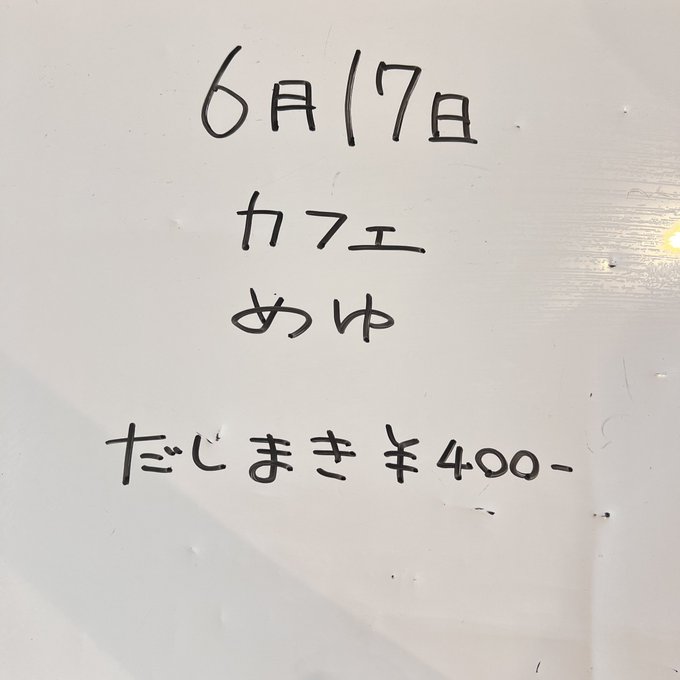 6月17日
カフェ
めゆ
だしまき¥400-